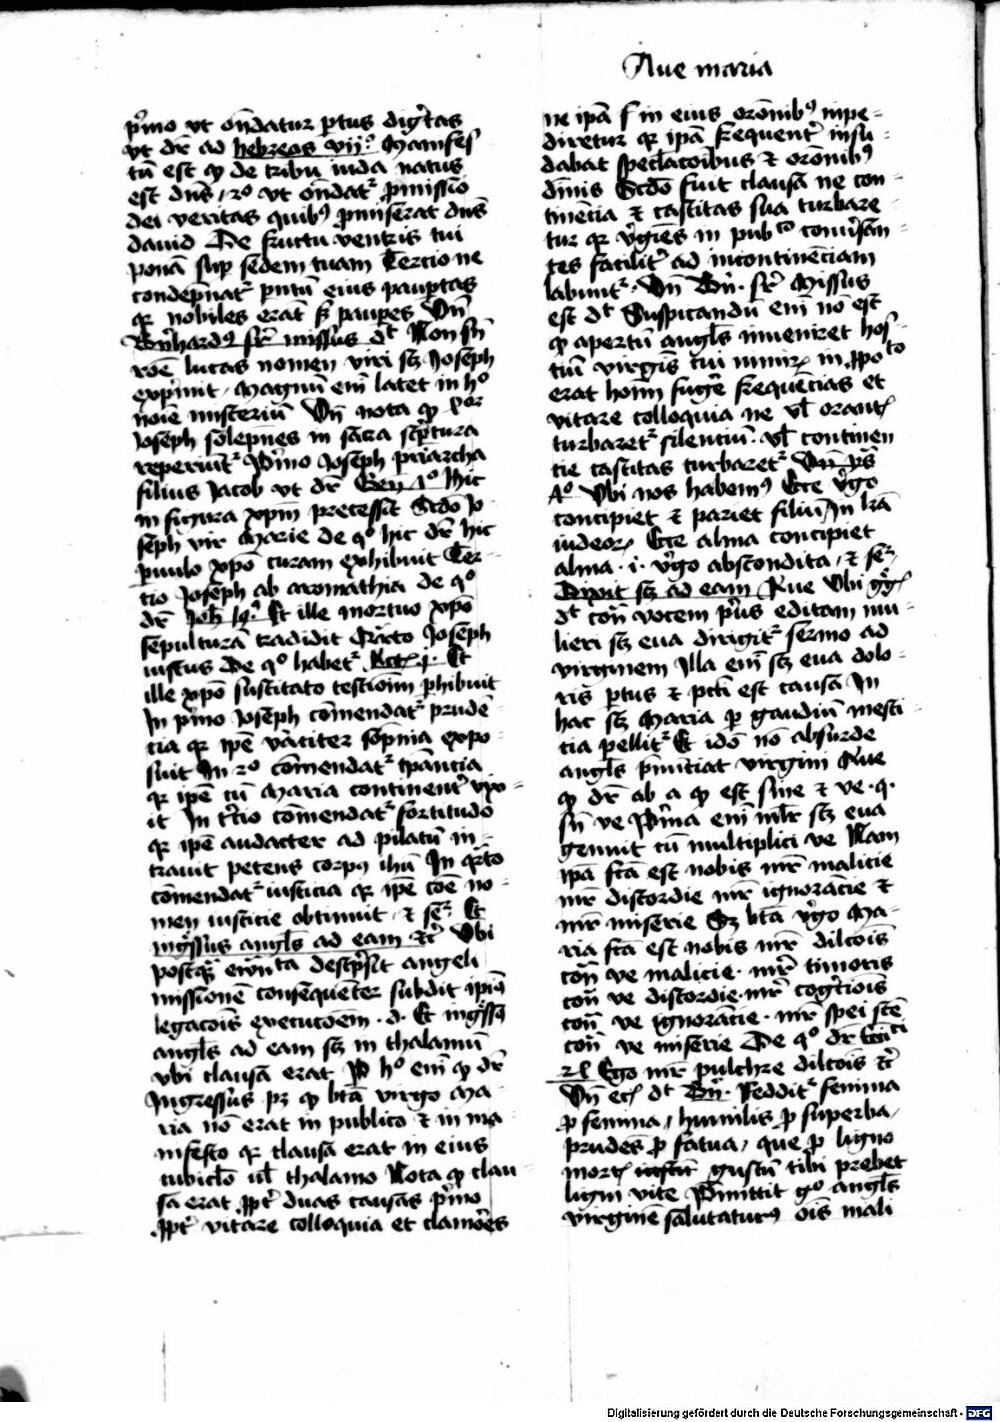 Aue maria
p̄mo vt on̄datur p̄tus diḡtas
vt dr̄ ad hebreos vijº Manifes
tū est qꝫ de tribu iuda natus
est dn̄s / 2º vt on̄dat᷑ p̄missio
dei veritas quibꝫ p̄miserat dn̄s
dauid De fructu ventris tui
ponā sup sedem tuam Tercio ne
condēpnat᷑ p̄ntū eius paup̄tas
qꝛ nobiles erāt sꝫ paupes Vn̄
Bn̄hardꝰ sr̄ missus dᵗ Non sn̄
rōē lucas nomen viri sꝫ Joseph
exp̄mit / Magnū enī latet in hº
noīe misteriū Vn̄ nota qꝫ
Joseph solēpnes in sacra sc̄ptura
reperiūt᷑ P̄mo Joseph p̄riarcha
filius Jacob vt dr̄ Gen̄ Hic
in figura xp̄m precessit Scdo Jo
seph vir Marie de qº hic dr̄ hic
puulo xp̄o curam exhibuit Ter
tio Joseph ab aromathia de qº
dr̄ Joh̄ 19º Et ille mortuo xp̄o
sepulturā tradidit Qrto Joseph
iustus De qº habet᷑ Act̄ j. Et
ille xp̄o suscitato testioīm phibuit
In p̄mo Joseph cōmendat᷑ prudē
cia qꝛ ip̄e vaciter sompnia expo
suit In 2º cōmendat᷑ tp̄ancia
qꝛ ip̄e cū Maria continent̄ vix
it In t̄cio cōmendat᷑ fortitudo
qꝛ ip̄e audacter ad pilatū in
trauit petens corpꝰ ihū In qrto
cōmendat᷑ iusticia qꝛ ip̄e cōe no
men iusticie obtinuit / ⁊ seꝛ Et
ingressus angl̄s ad eam ⁊c̄ Vbi
postqꝫ desc̄psit angeli
missionē consequenter subdit ipiꝰ
legacōis execucōem .d. Et ingssꝰ
angl̄s ad eam sꝫ in thalamū
vbi clausa erat P̄ hº enī qꝫ dr̄
Ingressus pꝫ qꝫ btā virgo Ma
ria nō erat in publico ⁊ in ma
nifesto qꝛ clausa erat in eius
cubiclo ul̄ thalamo Nota qꝫ clau
sa erat ꝓpt̄ duas causas p̄mo
ꝓpt̄ vitare colloquia et clamores
ne ipā s in eius orōnibꝰ inpe
diretur qꝛ ipā frequent̄ insu
dabat speclacōibus ⁊ orōnibꝰ
diuis Scdo fuit clausa ne con
tinēcia ⁊ castitas sua turbare
tur qꝛ v̄gies in pubco con̄san
tes facilit̄ ad incontinēciam
labunt᷑. Vn̄ Bn̄. sr̄ Missus
est dᵗ Suspicandū enī nō est
qꝫ apertū angl̄s inueniret hos
tiū virginis cui nimiꝝ in ꝓpoto
erat hoīm fugē frequēcias et
vitare colloquia ne vl̄ orantꝭ
turbaret᷑ silentiū. vl̄ continen
tie castitas turbaret᷑
Aº Vbi nos habemꝰ Ecce v̄go
concipiet ⁊ pariet filiū In lrā
iudeoꝝ Ecce alma concipiet
alma .i. v̄go abscondita / ⁊ seꝛ
Dixit sꝫ ad eam Aue Vbi
dᵗ con̄ vocem p̄us editam mu
lieri sꝫ eua dirigit᷑ sermo ad
virginem Illa enī sꝫ eua dolo
ris p̄tus ⁊ pcti est causa In
hac sꝫ Maria p gaudiū mesti
cia pellit᷑ Et idō nō absurde
angl̄s p̄nūciat virgini Aue
qꝫ dr̄ ab a qꝫ est sine ⁊ ve .q.
sn̄ ve P̄ma enī ml̄r sꝫ eua
genuit cū multiplici ve Nam
ipā fcā est nobis mr̄ malicie
mr̄ discordie mr̄ ignorācie ⁊
mr̄ miserie Sꝫ btā v̄go Ma
ria fcā est nobis mr̄ dilcōis
con̄ ve malicie. mr̄ timoris
con̄ ve discordie. mr̄ coḡtiois
con̄ ve ignorācie. mr̄ spei scē
con̄ ve miserie De qº dr̄
Ego mr̄ pulchre dilcōis ⁊c̄
Vn̄ dᵗ Bn̄. Reddit᷑ femina
ꝓ femina / humilis ꝓ superba /
prudēs ꝓ fatua / que ꝓ ligno
mortꝭ gustū tibi prebet
ligni vite P̄mittit gº angl̄s
virginē salutaturꝰ ois mali
Digitalisierung gefördert durch die Deutsche Forschungsgemeinschaft - DFG